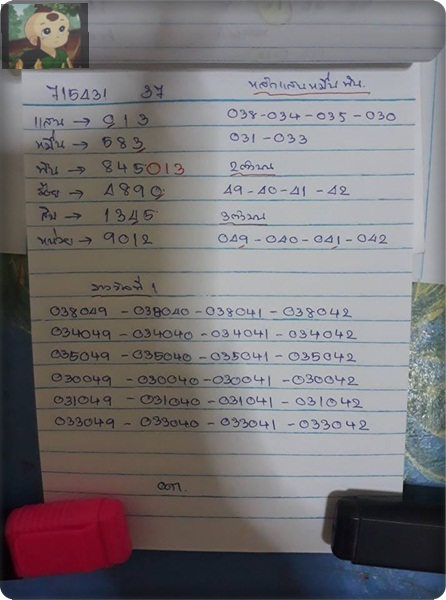 715431 37 หลักแสน หมื่น พัน.
แสน → 013 038-034-035-030
หมื่น → 583 031-033
พัน → 845013 2ตัวบน
ร้อย → 4890 49-40-41-42
สิบ → 1345 3ตัวบน
หน่วย → 9012 049-040-041-042
รางวัลที่ 1
038049 - 038040 - 038041 - 038042
034049 - 034040 - 034041 - 034042
035049 - 035040 - 035041 - 035042
030049 - 030040 - 030041 - 030042
031049 - 031040 - 031041 - 031042
033049 - 033040 - 033041 - 033042